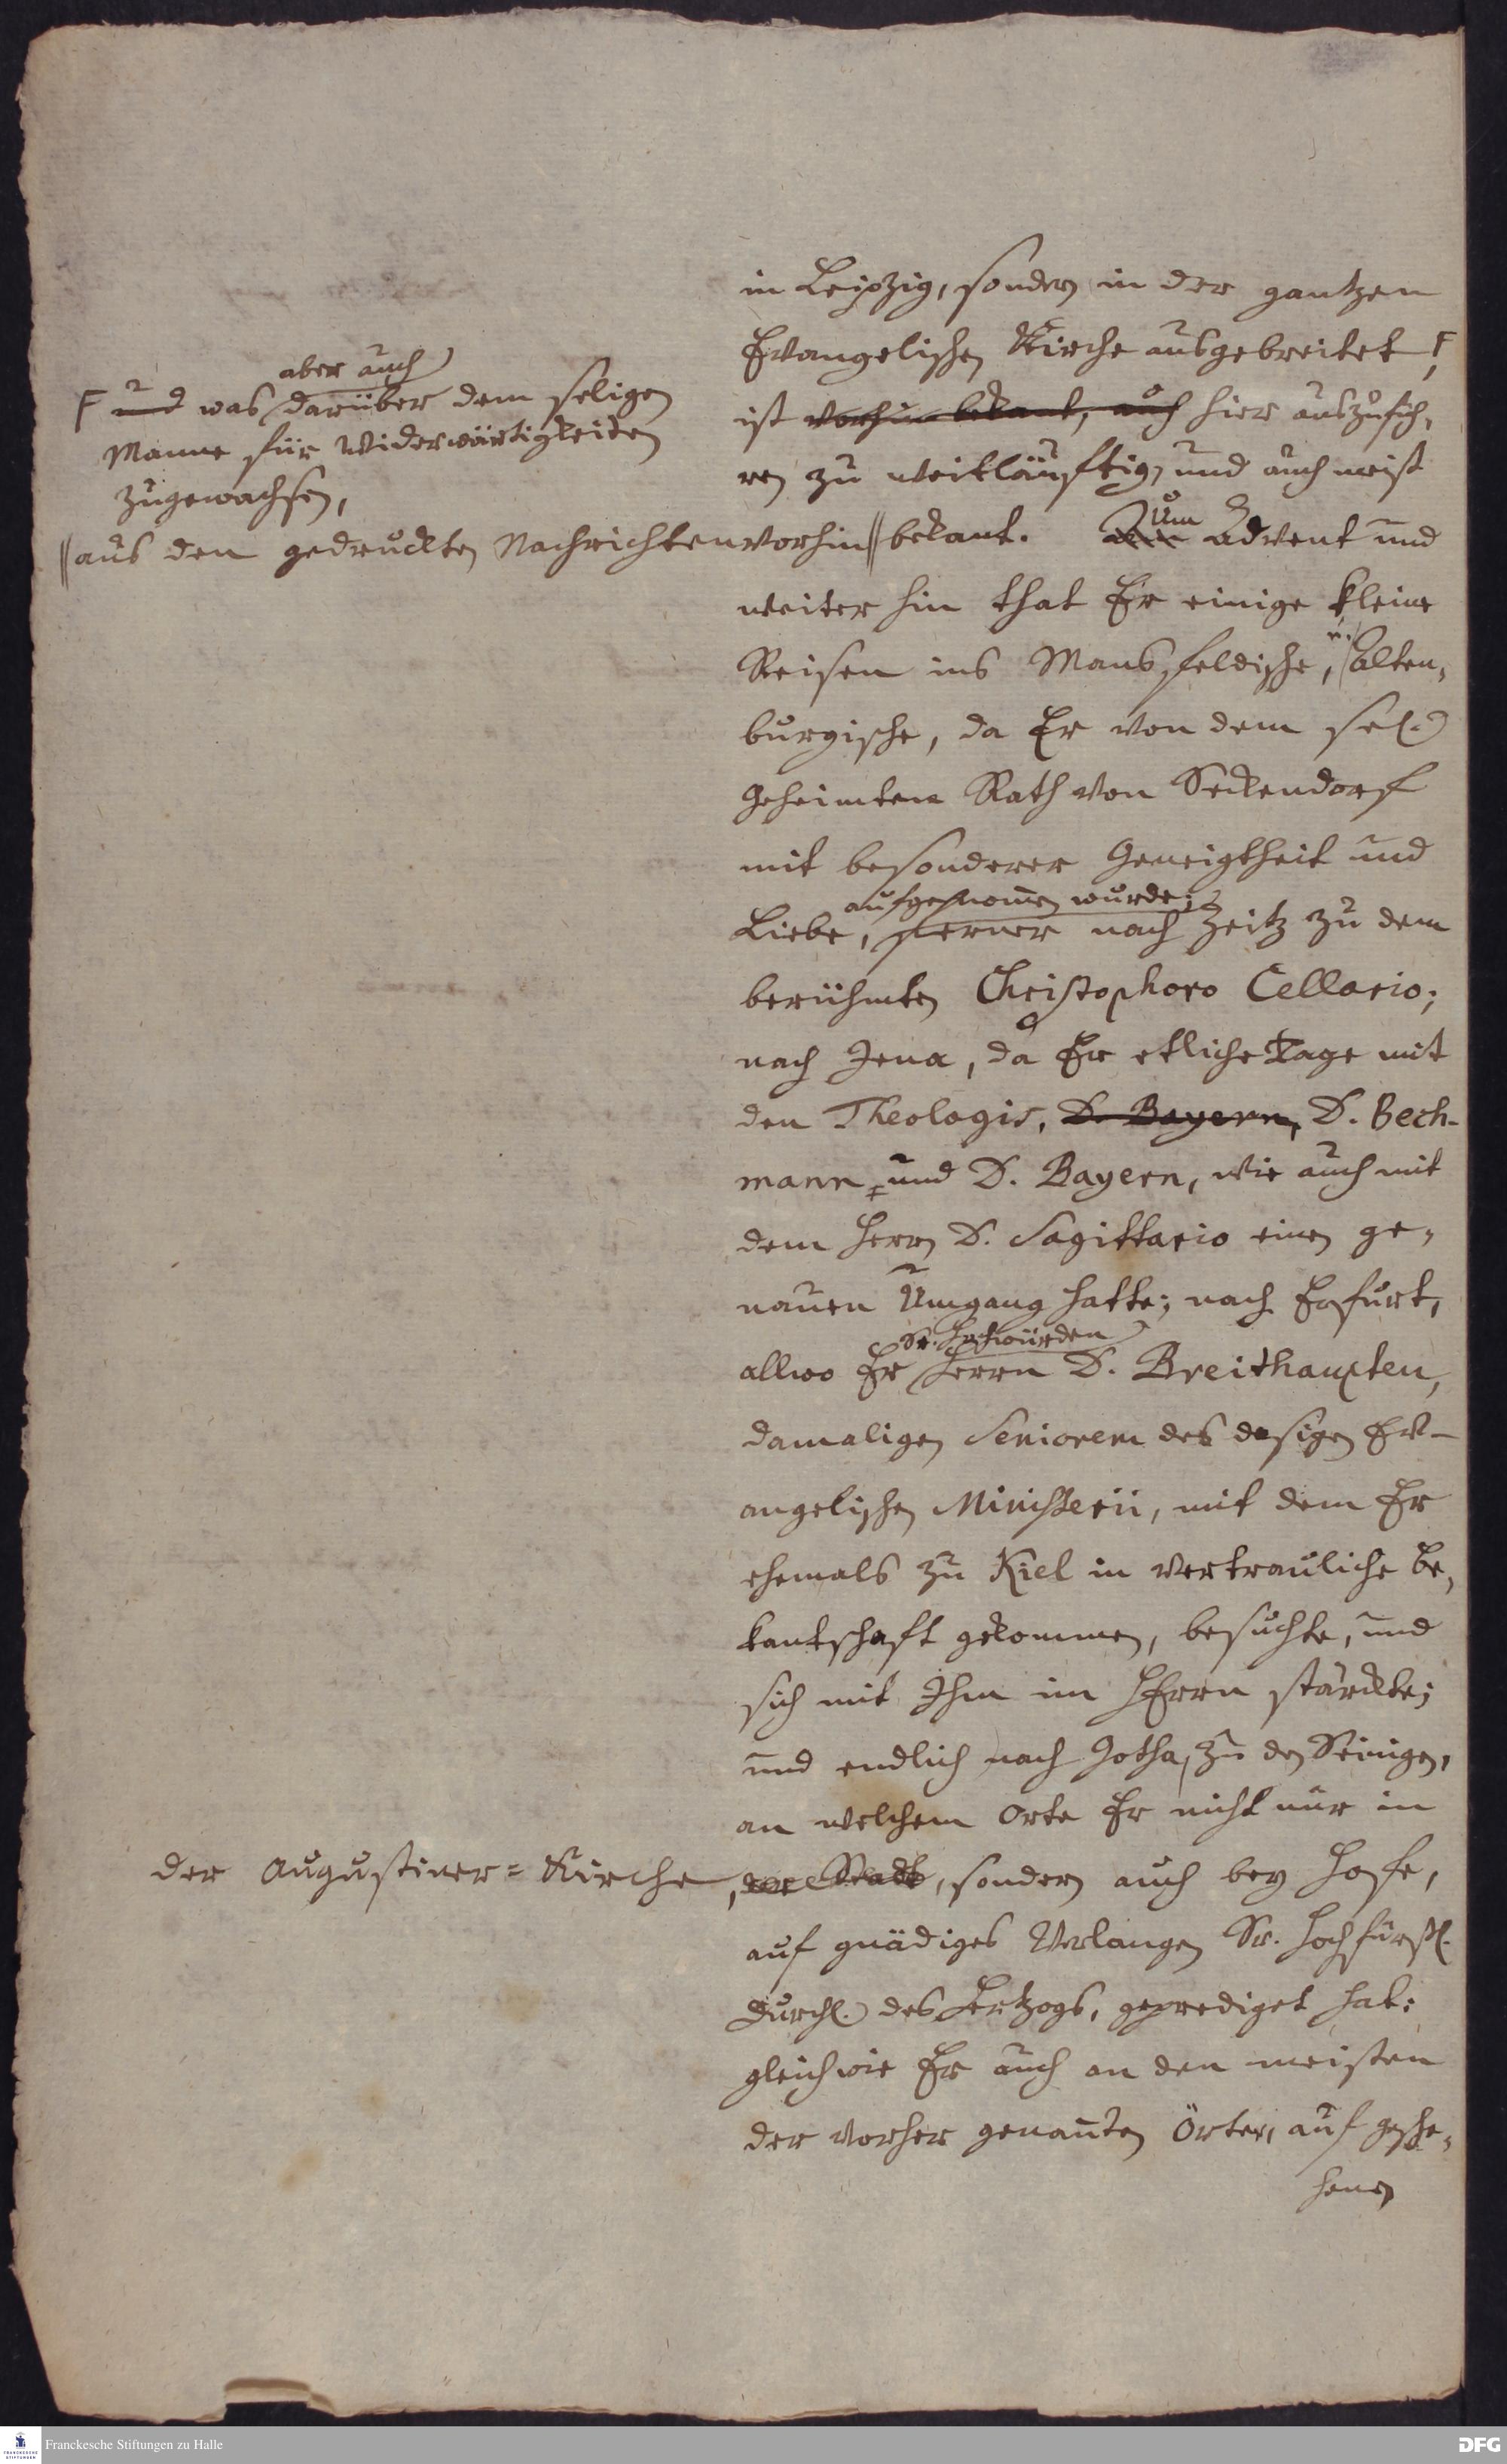 in Leipzig, sondern in der gantzen
Evangelischen Kirche ausgebreitet, F
aber auch
F und was darüber dem seligen
Manne für Widerwärtigkeiten
zugewachsen,
ist vorhin bekant, auch hier auszufüh,
ren zu weitläuftig, und auch meist
|| aus den gedruckten Nachrichten vorhin || bekant. Zum Advent und
weiter hin that Er einige kleine
Reisen ins Mansfeldische, u. Alten,
burgische, da Er von dem sel.
Geheimten Rath von Seckendorf
mit besonderer Geneigtheit und
aufgenommen wurde;
Liebe, ferner nach Zeitz zu dem
berühmten Christophoro Cellario;
nach Jena, da Er etliche Tage mit
den Theologis, D. Bayern, D. Bech-
mann und D. Bayern, wie auch mit
dem Herrn D. Sagittario einen ge,
nauen Umgang hatte; nach Erfurt,
Sr. Hochwürden
allwo Er Herrn D. Breithaupten,
damaligen Seniorem des dasigen Ev-
angelischen Ministerii, mit dem Er
ehemals zu Kiel in vertrauliche Be,
kantschaft gekommen, besuchte, und
sich mit Ihm im HErrn stärckte;
und endlich nach Gotha, zu den Seinigen,
an welchem Orte Er nicht nur in
der Augustiner=Kirche, der Stadt, sondern auch bey Hofe,
auf gnädiges Verlangen Sr. Hochfürstl.
Durchl. des Hertzogs, geprediget hat:
gleichwie Er auch an den meisten
der vorher genannten Örter, auf gesche,
henes
Franckesche Stiftungen zu Halle
DFG